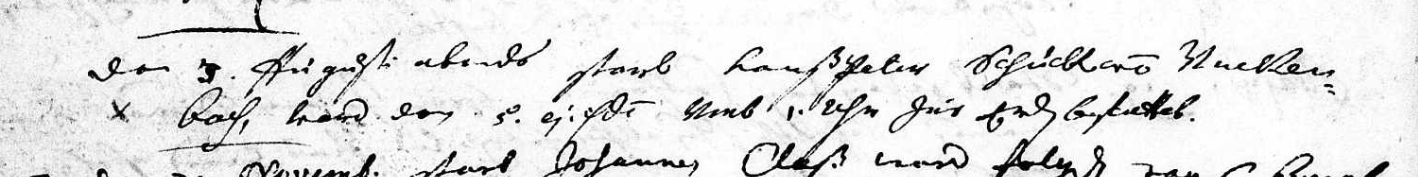 den 3. Augusti abends starb Hanß Peter Schück von Nucken=
bach, ward den 5. ejusd. umb 1. Uhr zur Erden bestattet.
Novemb. starb Johannes Claß ward